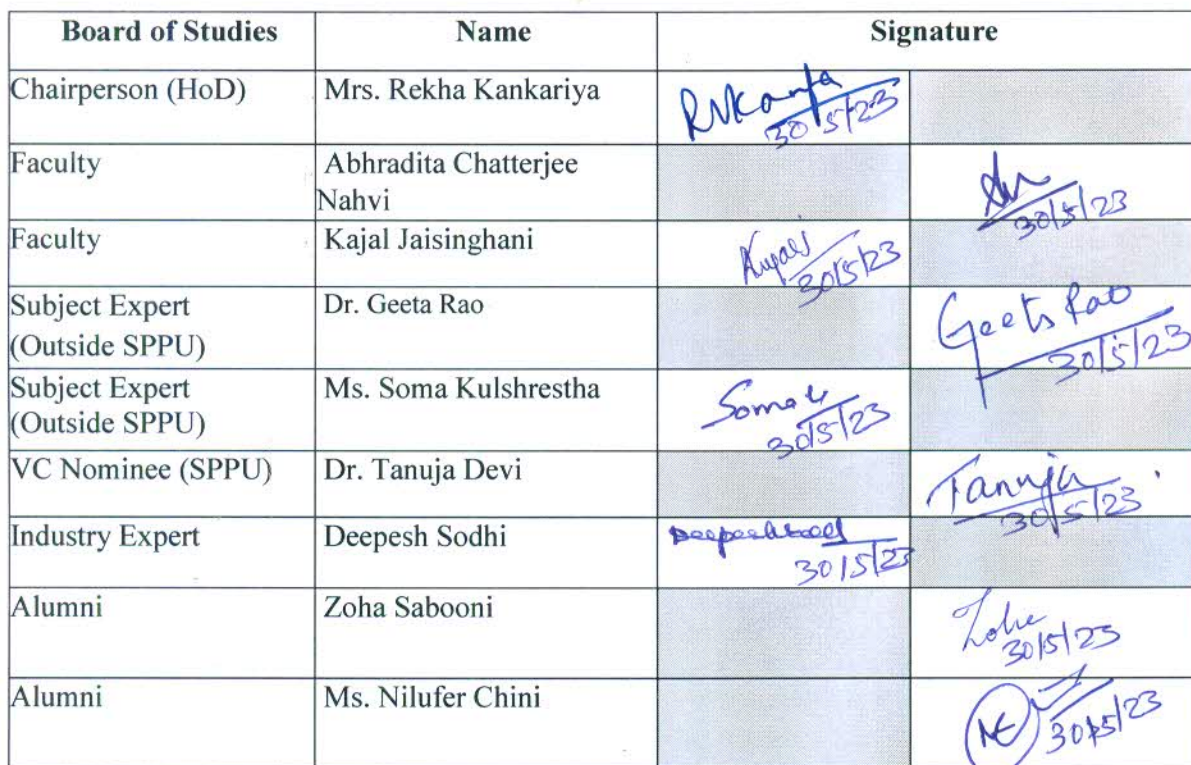 Board of Studies Name Signature
Chairperson (HoD) Mrs. Rekha Kankariya
30/5/23
Faculty Abhradita Chatterjee
Nahvi
30/5/23
Faculty Kajal Jaisinghani
30/5/23
Subject Expert Dr. Geeta Rao Geeta Rao
(Outside SPPU)
30/5/23
Subject Expert Ms. Soma Kulshrestha
(Outside SPPU)
30/5/23
VC Nominee (SPPU) Dr. Tanuja Devi Tanuja
30/5/23
Industry Expert Deepesh Sodhi
30/5/23
Alumni Zoha Sabooni Zoha
30/5/23
Alumni Ms. Nilufer Chini
30/5/23